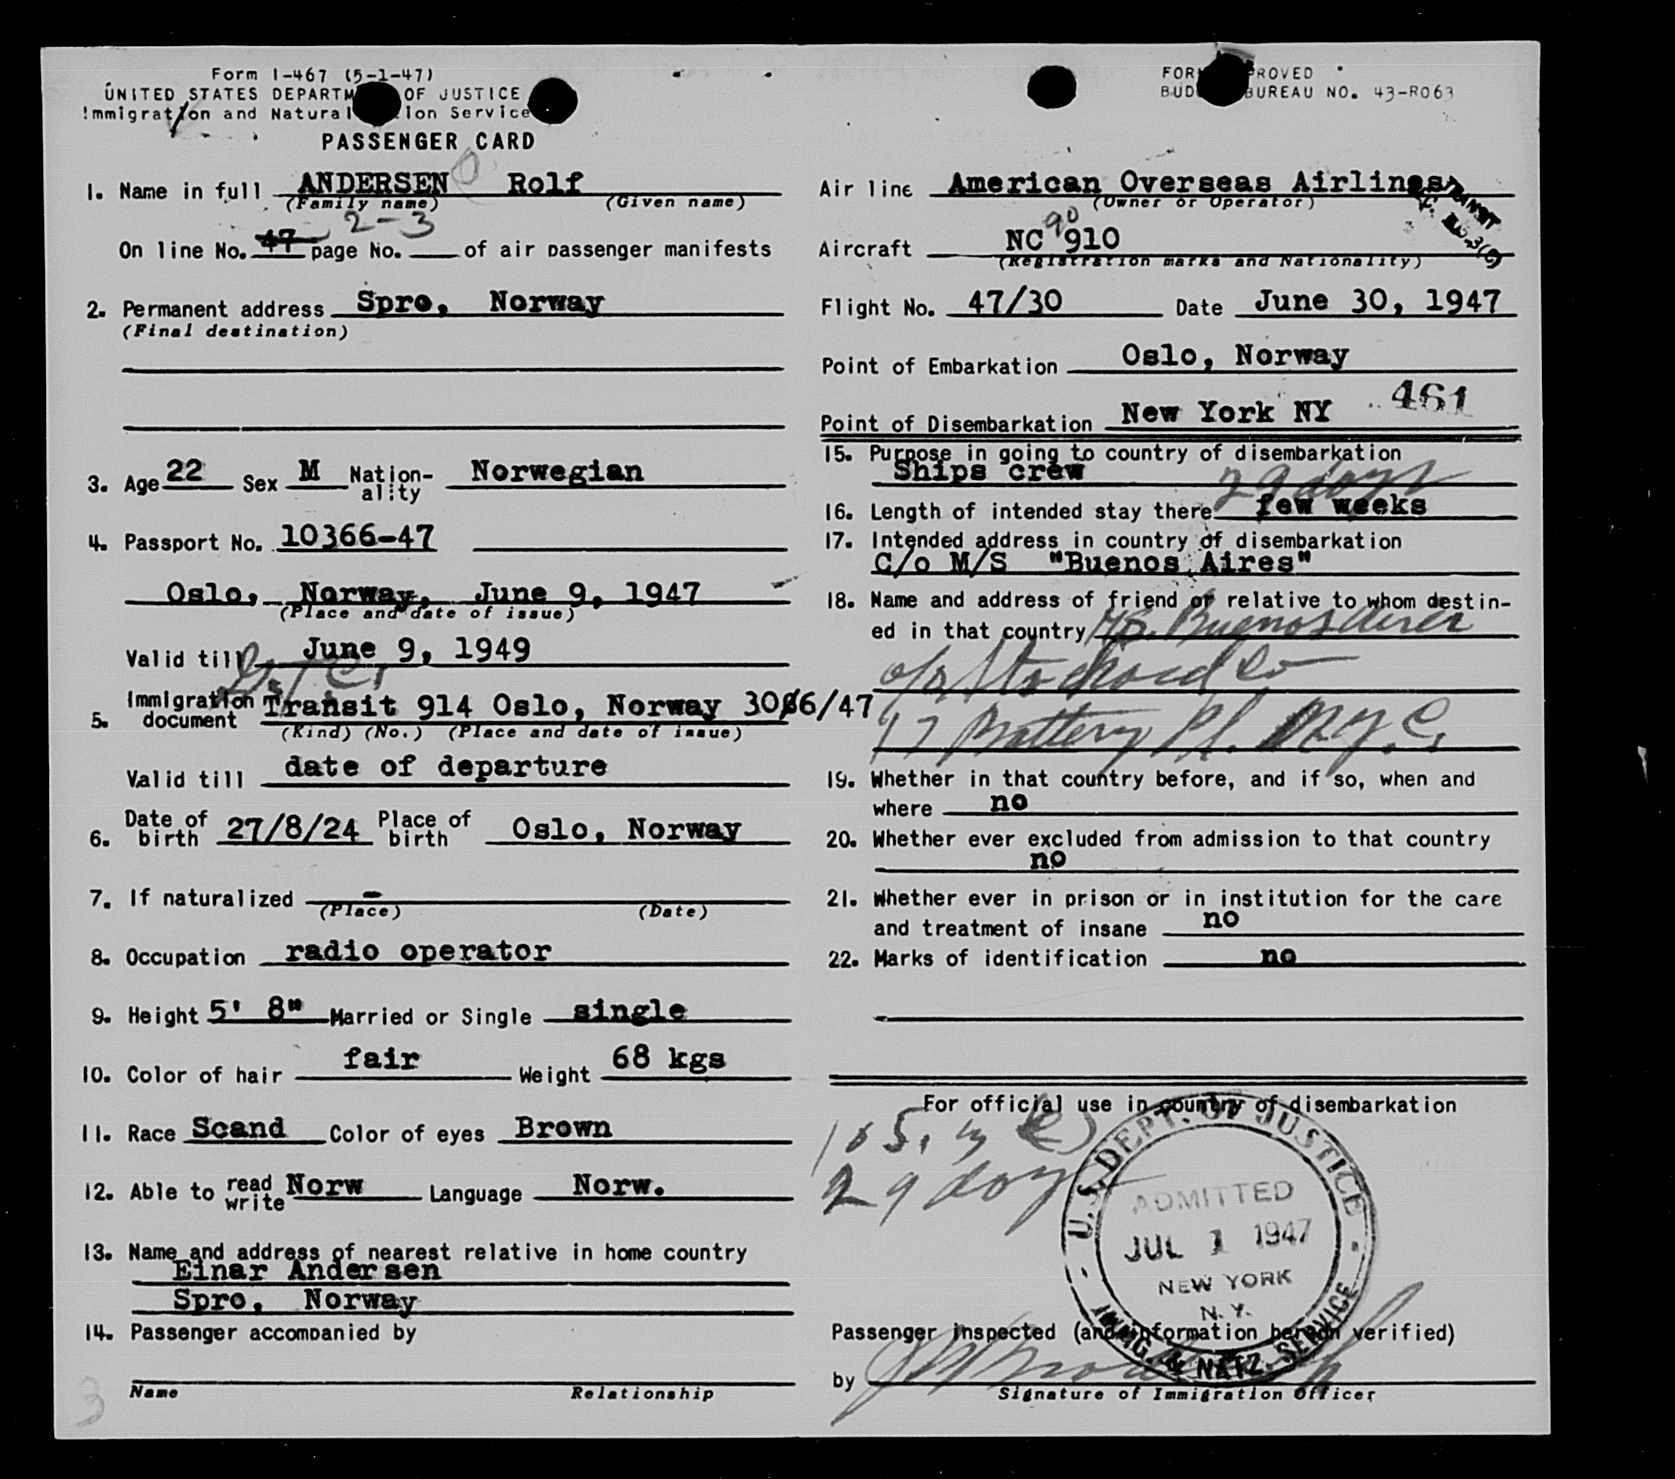 Form I-467 (5-1-47)
UNITED STATES DEPARTM OF JUSTICE
Immigration and Natural ion Service
PASSENGER CARD
1. Name in full ANDERSEN Rolf
(Family name) (Given name)
2-3
On line No. 47 page No. of air passenger manifests
2. Permanent address Spro, Norway
(Final destination)
3. Age 22 Sex M Nation-ality Norwegian
4. Passport No. 10366-47
Oslo, Norway, June 9, 1947
(Place and date of issue)
Valid till June 9, 1949
5. Immigration document Transit 914 Oslo, Norway 30/6/47
(Kind) (No.) (Place and date of issue)
Valid till date of departure
6. Date of birth 27/8/24 Place of birth Oslo, Norway
7. If naturalized -
(Place) (Date)
8. Occupation radio operator
9. Height 5' 8" Married or Single single
10. Color of hair fair Weight 68 kgs
11. Race Scand Color of eyes Brown
12. Able to read write Norw Language Norw.
13. Name and address of nearest relative in home country
Einar Andersen
Spro, Norway
14. Passenger accompanied by
Name Relationship
3
FOR PROVED
BUD BUREAU NO. 43-R063
Air line American Overseas Airlines
(Owner or Operator)
TRANSIT
90
Aircraft NC 910
(Registration marks and Nationality)
Flight No. 47/30 Date June 30, 1947
Point of Embarkation Oslo, Norway
Point of Disembarkation New York NY 461
15. Purpose in going to country of disembarkation
Ships crew
29 days
16. Length of intended stay there few weeks
17. Intended address in country of disembarkation
C/o M/S "Buenos Aires"
18. Name and address of friend or relative to whom destin-
ed in that country MS. Buenos Aires
c/o Stockard Co
17 Battery Pl. N.Y.C.
19. Whether in that country before, and if so, when and
where no
20. Whether ever excluded from admission to that country
no
21. Whether ever in prison or in institution for the care
and treatment of insane no
22. Marks of identification no
For official use in country of disembarkation
29 days
U.S. DEPT. OF JUSTICE
ADMITTED
JUL 1 1947
NEW YORK
N.Y.
IMMIG. & NATZ. SERVICE
Passenger inspected (and information hereon verified)
by
Signature of Immigration Officer